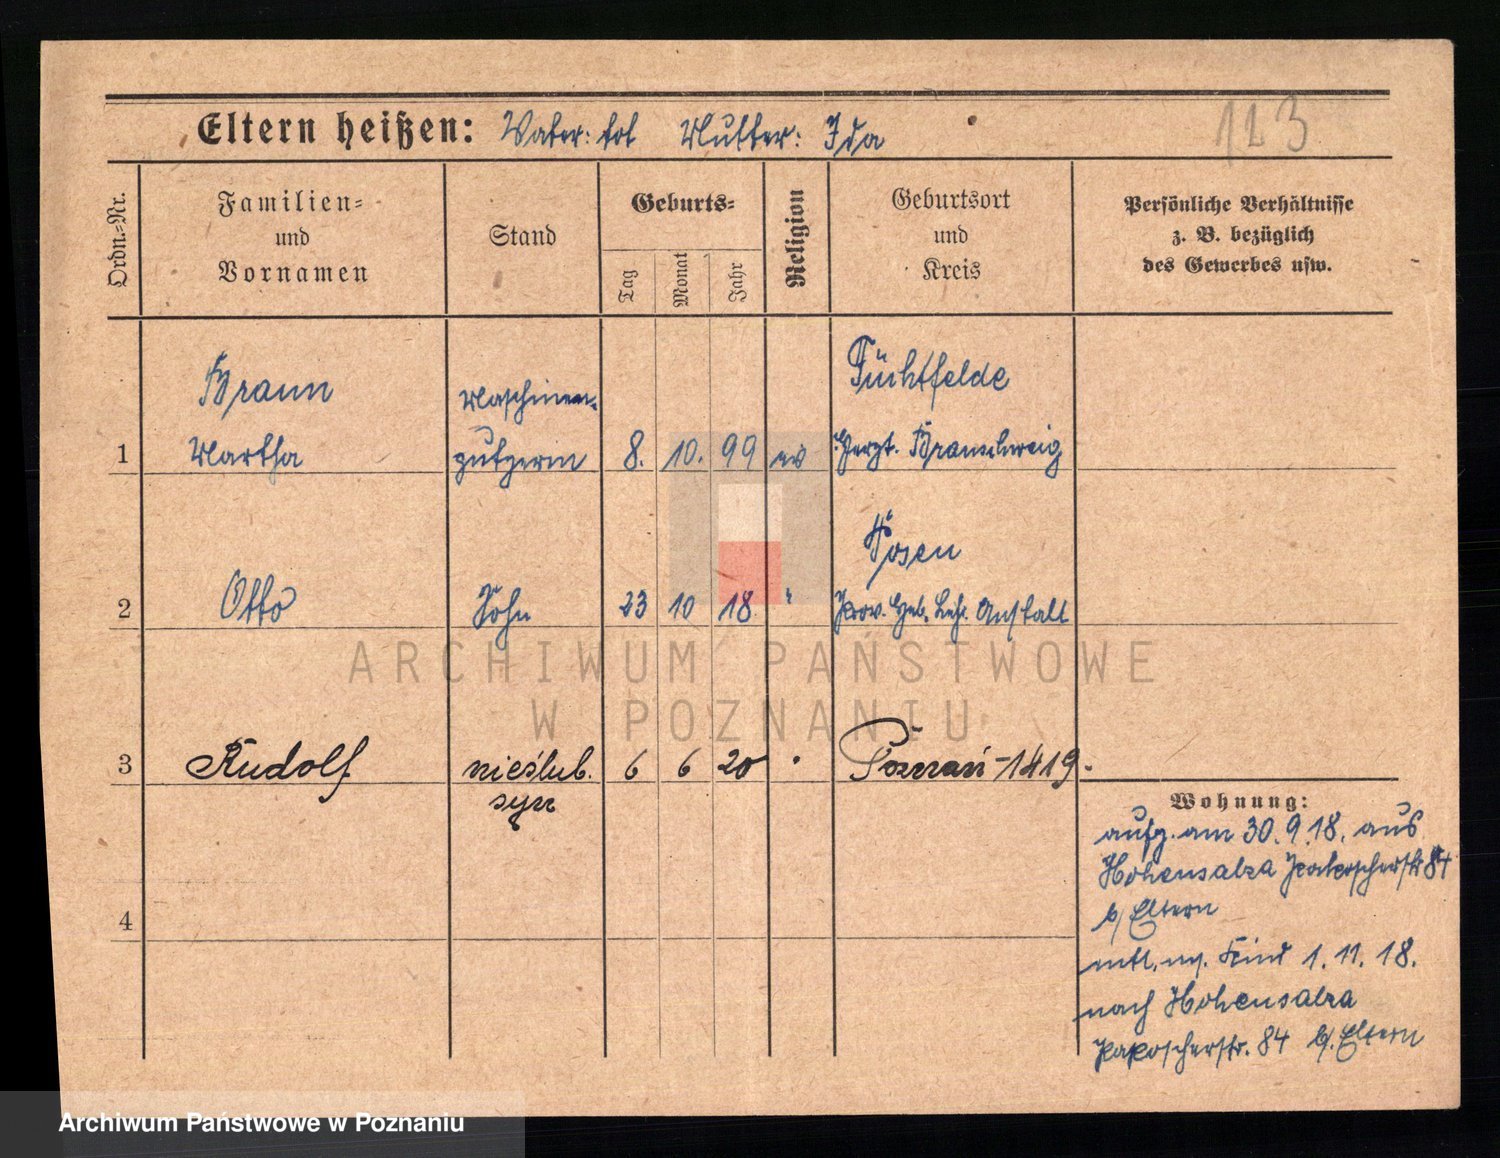 123
Eltern heißen: Vater: tot Mutter: Ida
Ordn.-Nr.
Familien-
und
Vornamen
Stand
Geburts-
Tag
Monat
Jahr
Religion
Geburtsort
und
Kreis
Persönliche Verhältnisse
z. B. bezüglich
des Gewerbes usw.
Braun
Maschinen-
Füchtfelde
1 Martha
8. 10. 99 ev
Herzt. Braunschweig
Posen
2 Otto Sohn 23 10 18 "
Prov. Heb. Lehr. Anstalt
3 Rudolf nieślub. 6 6 20 Poznań - 1419.
syn
Wohnung:
aufg. am 30.9.18. aus
Hohensalza Pakoscherstr 84
b/ Eltern
4
mtl. m. Kind 1.11.18.
nach Hohensalza
Pakoscherstr. 84 b/. Eltern
ARCHIWUM PAŃSTWOWE
W POZNANIU
Archiwum Państwowe w Poznaniu